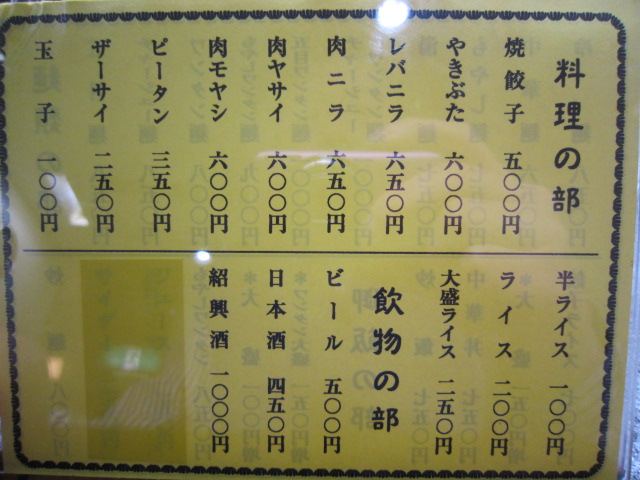 料理の部
焼餃子 五〇〇円
やきぶた 六〇〇円
レバニラ 六五〇円
肉ニラ 六五〇円
肉ヤサイ 六〇〇円
肉モヤシ 六〇〇円
ピータン 三五〇円
ザーサイ 二五〇円
玉子 一〇〇円
半ライス 一〇〇円
ライス 二〇〇円
大盛ライス 二五〇円
飲物の部
ビール 五〇〇円
日本酒 四五〇円
紹興酒 一〇〇〇円